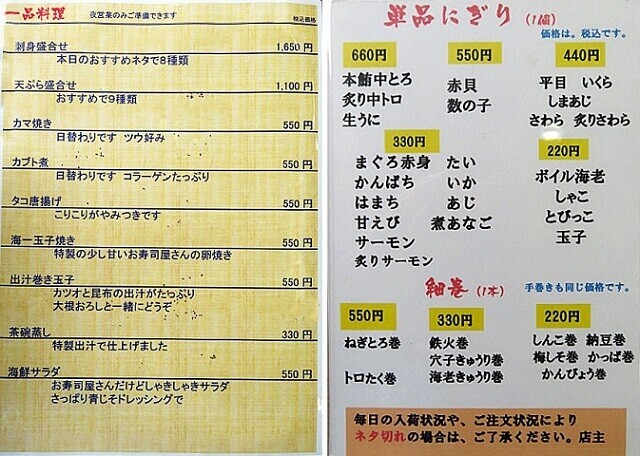 一品料理 夜営業のみご準備できます 税込価格
刺身盛合せ 1,650 円
本日のおすすめネタで8種類
天ぷら盛合せ 1,100 円
おすすめで9種類
カマ焼き 550 円
日替わりです ツウ好み
カブト煮 550 円
日替わりです コラーゲンたっぷり
タコ唐揚げ 550 円
こりこりがやみつきです
海一玉子焼き 550 円
特製の少し甘いお寿司屋さんの卵焼き
出汁巻き玉子 550 円
カツオと昆布の出汁がたっぷり
大根おろしと一緒にどうぞ
茶碗蒸し 330 円
特製出汁で仕上げました
海鮮サラダ 550 円
お寿司屋さんだけどしゃきしゃきサラダ
さっぱり青じそドレッシングで
単品にぎり (1個)
価格は。税込です。
660円
本鮪中とろ
炙り中トロ
生うに
550円
赤貝
数の子
440円
平目 いくら
しまあじ
さわら 炙りさわら
330円
まぐろ赤身 たい
かんぱち いか
はまち あじ
甘えび 煮あなご
サーモン
炙りサーモン
220円
ボイル海老
しゃこ
とびっこ
玉子
細巻 (1本) 手巻きも同じ価格です。
550円
ねぎとろ巻
トロたく巻
330円
鉄火巻
穴子きゅうり巻
海老きゅうり巻
220円
しんこ巻 納豆巻
梅しそ巻 かっぱ巻
かんぴょう巻
毎日の入荷状況や、ご注文状況により
ネタ切れの場合は、ご了承ください。店主